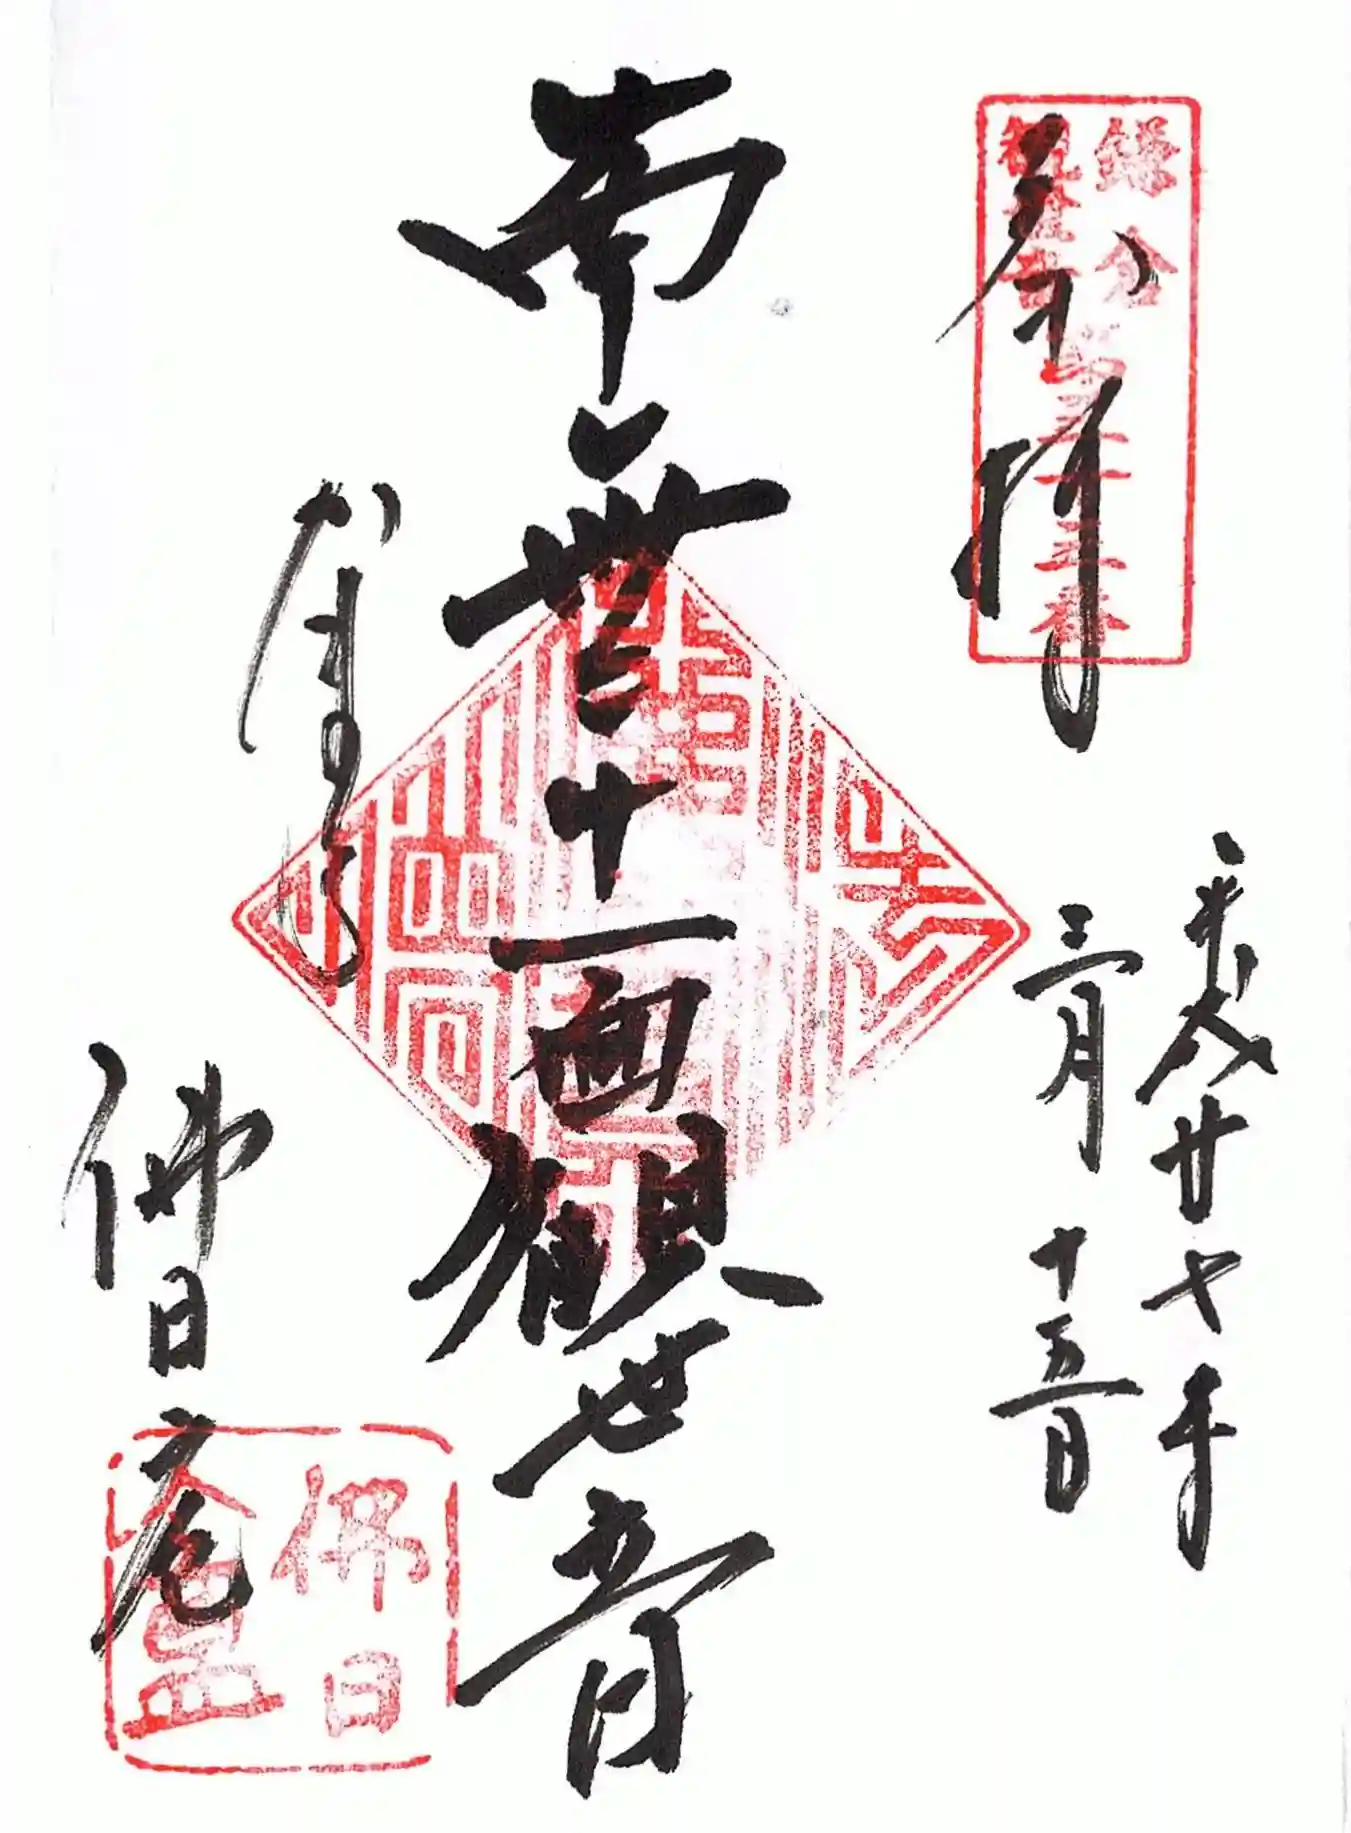 鎌倉
観世音
第三十三番
奉拝
平成廿七年
三月十五日
南無十一面観世音
かまくら
佛日庵
佛日
盦